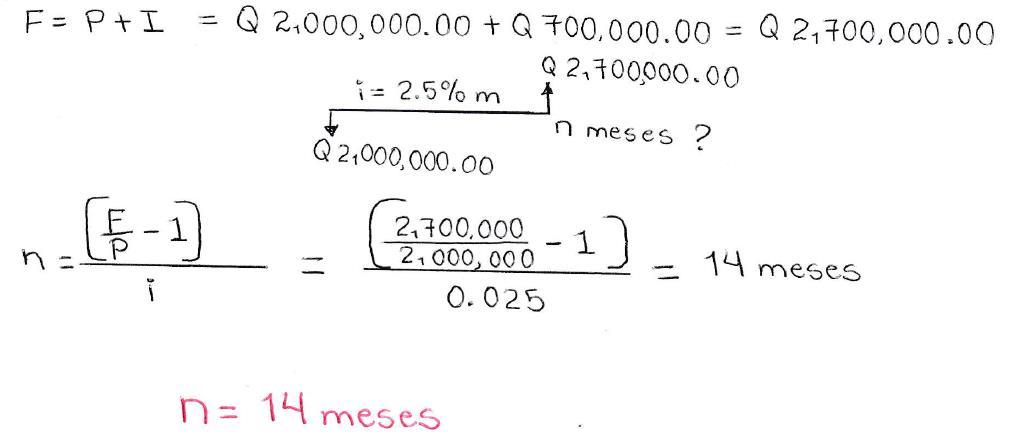 F = P + I = Q 2,000,000.00 + Q 700,000.00 = Q 2,700,000.00
Q 2,700,000.00
i = 2.5% m
n meses ?
Q 2,000,000.00
n = [F/P - 1] / i = [2,700,000/2,000,000 - 1] / 0.025 = 14 meses
n = 14 meses